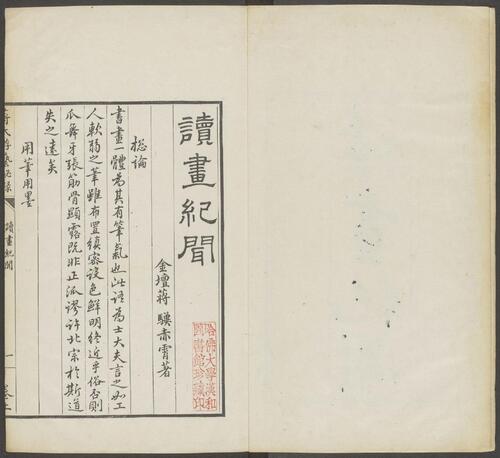 讀畫紀聞
哈佛大學漢和
圖書館珍藏印
金壇蔣 驥赤霄著
揔論
書畫一體為其有筆氣也此語為士大夫言之如工
人軟弱之筆雖布置縝密設色鮮明終近乎俗否則
爪舞牙張筋骨顯露既非正派謬許北宗於斯道
失之遠矣
用筆用墨
蔣氏游藝秘録 讀畫紀聞 一